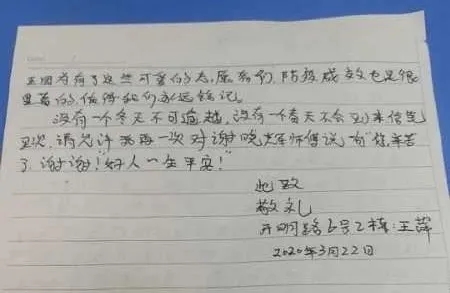 正因为有了这些可爱的志愿者们,防疫成效也是很
显著的,值得我们永远铭记。
没有一个冬天不可逾越,没有一个春天不会到来信笔
至此,请允许我再一次对谢晓师傅说一句"您辛苦
了,谢谢!好人一生平安!"
此致
敬礼
开明路6号2楼:王萍
2020年3月22日